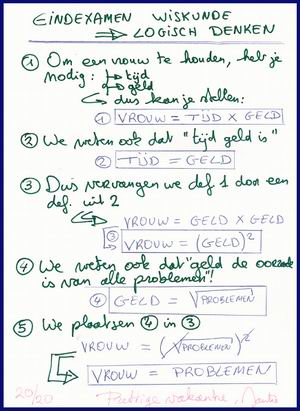 EINDEXAMEN WISKUNDE
⇒ LOGISCH DENKEN
① Om een vrouw te houden, heb je
nodig: → tijd
→ geld
→ dus kan je stellen:
① VROUW = TIJD X GELD
② We weten ook dat "tijd geld is"
② TIJD = GELD
③ Dus vervangen we def 1 door een
def. uit 2
VROUW = GELD X GELD
③ VROUW = (GELD)²
④ We weten ook dat "geld de oorzaak
is van alle problemen"!
④ GELD = √PROBLEMEN
⑤ We plaatsen ④ in ③
VROUW = (√PROBLEMEN)²
VROUW = PROBLEMEN
20/20 Prettige vakantie,